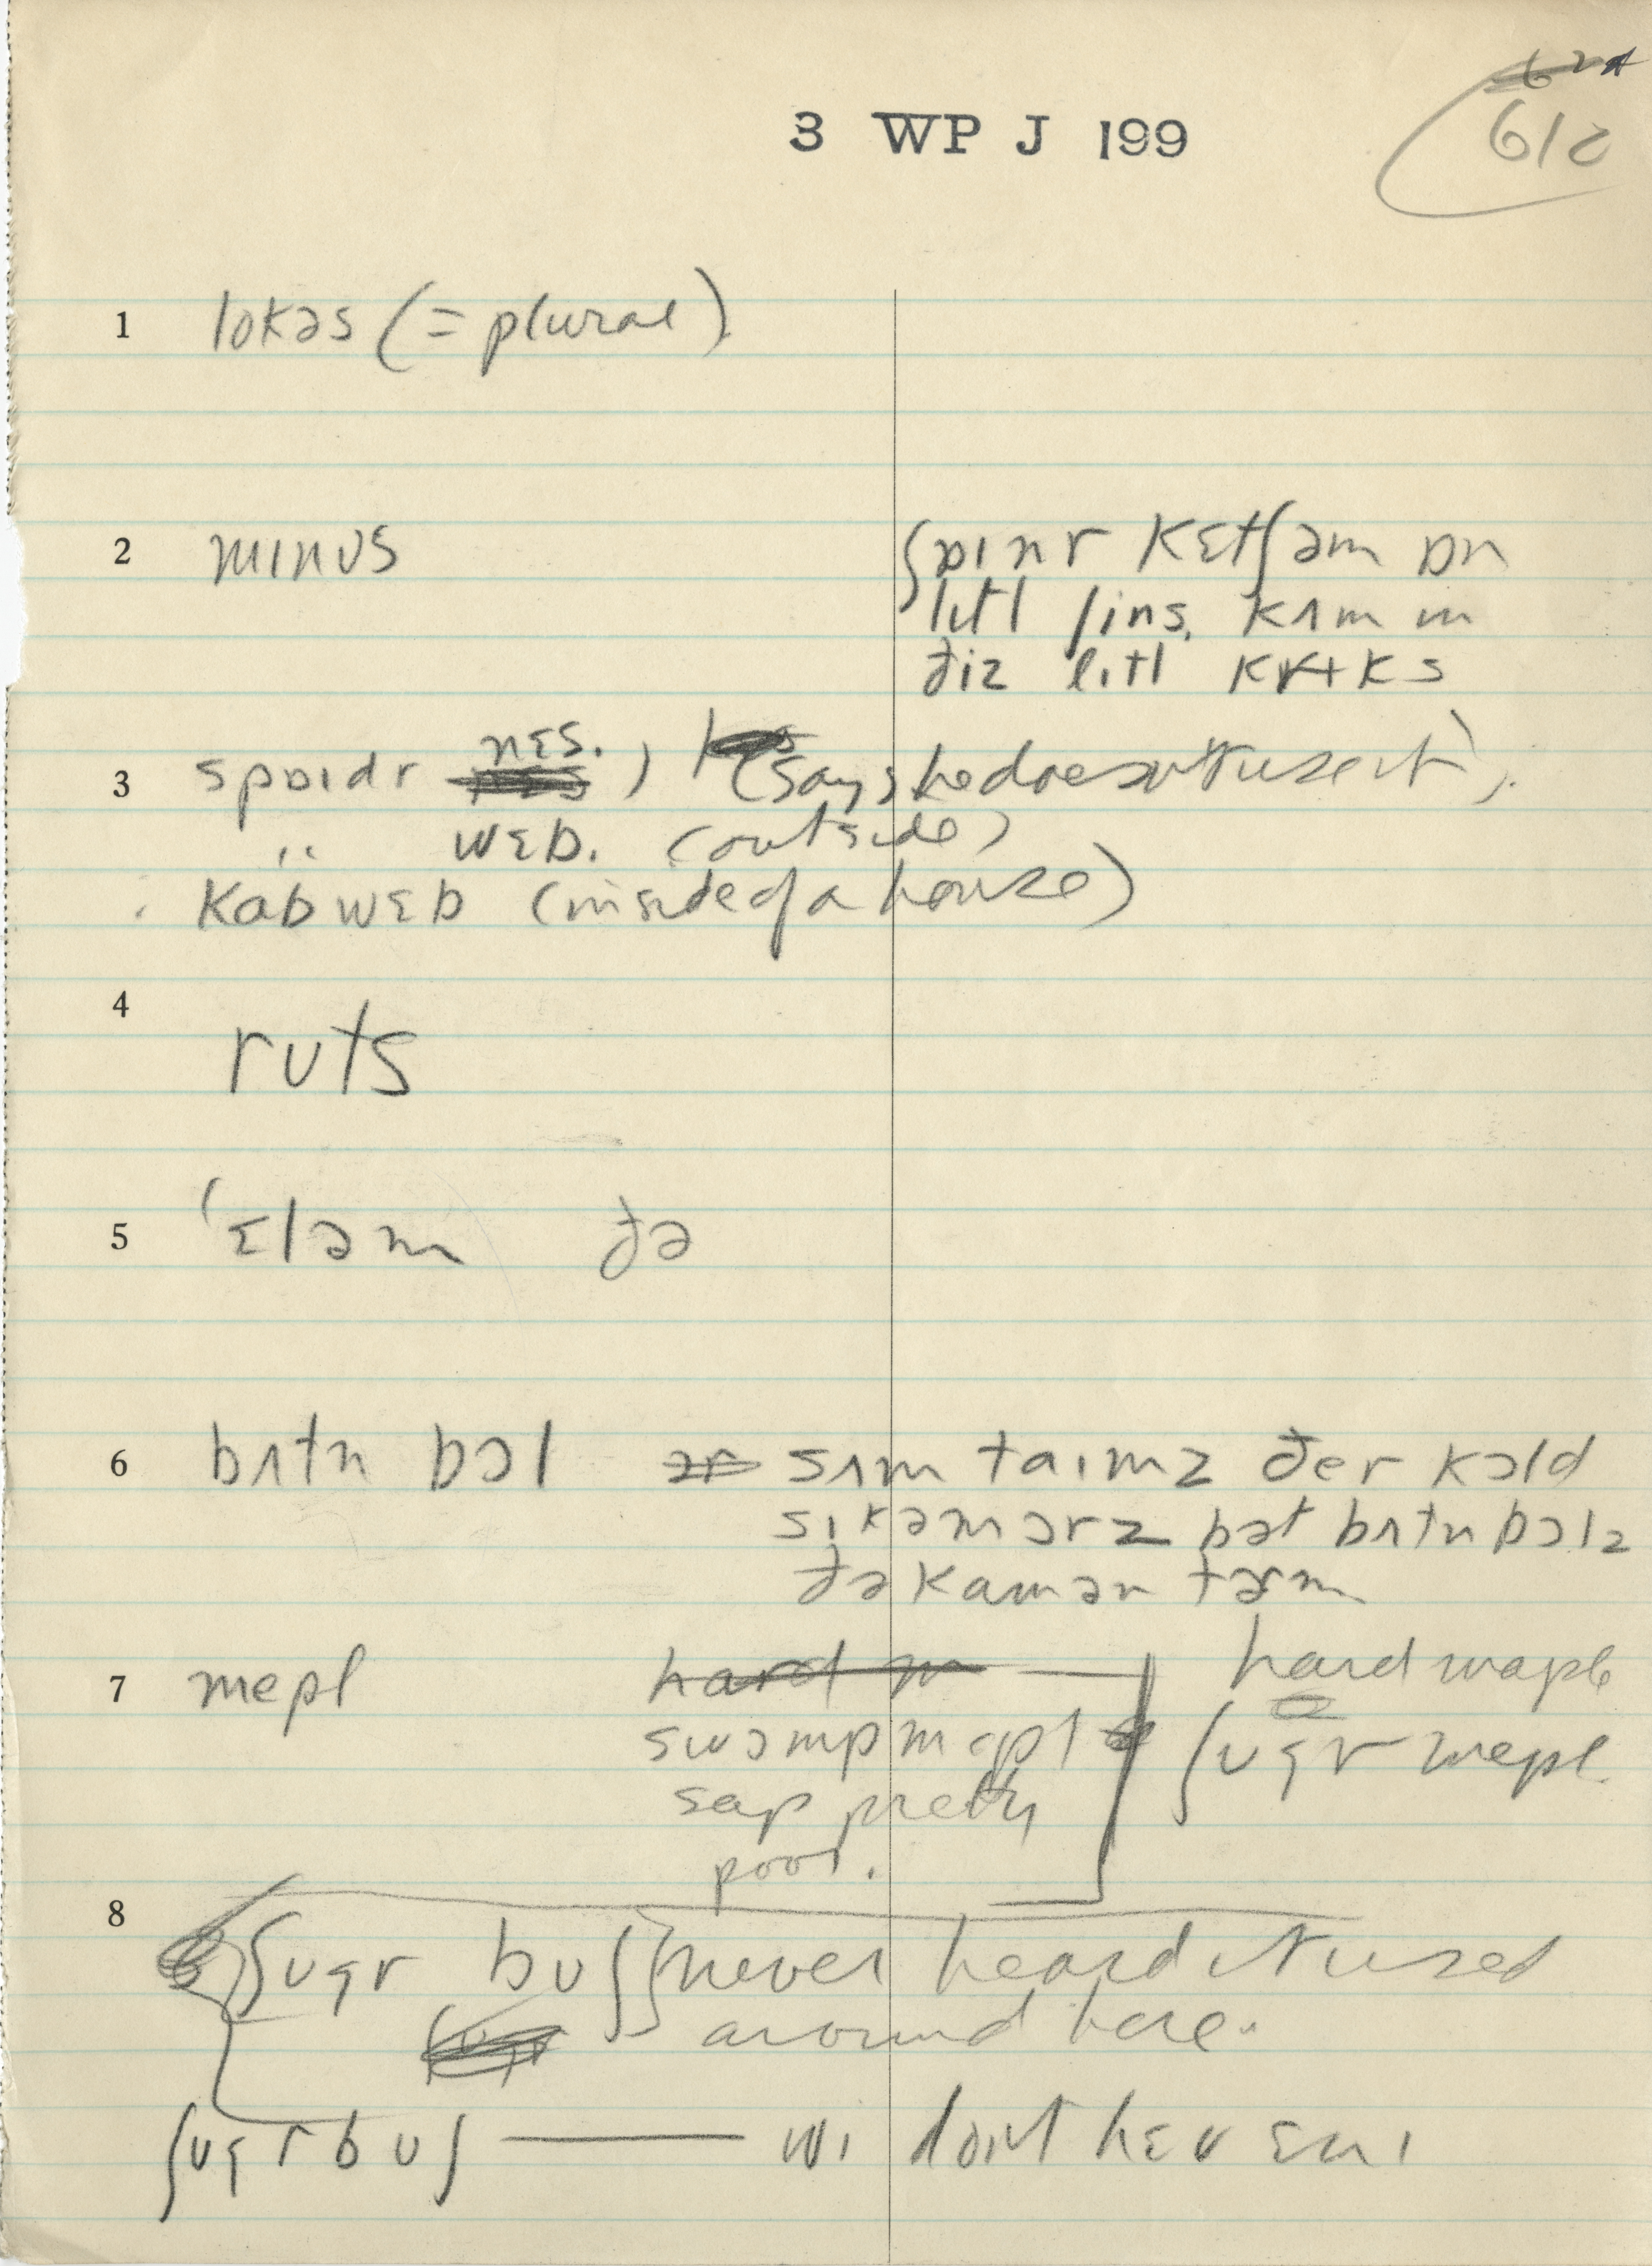 3 WP J 199
612
1 lokəs (= plural)
2 mɪnʊs
ʃɒɪnr kɛtʃəm ɒn
lɪtl ʃins, kʌm ɪn
ðiz lɪtl krɪks
3 spɒɪdr nɛs. , (says he doesn't use it).
" wɛb. (outside)
kabwɛb (inside of a house)
4 rʊts
5 'ɛləm ðə
6 bʌtn bɔl sʌm taɪmz ðer kɔld
sɪkəmɔrz bət bʌtnbɔlz
ðə kamən tərm
7 mepl hard m hard maple
swɔmp mepl ʃʊgr mepl
sap pretty
poor.
8 ʃʊgr bʊʃ never heard it used
around here.
ʃʊgr bʊʃ — wi dont hɛv ɛnɪ